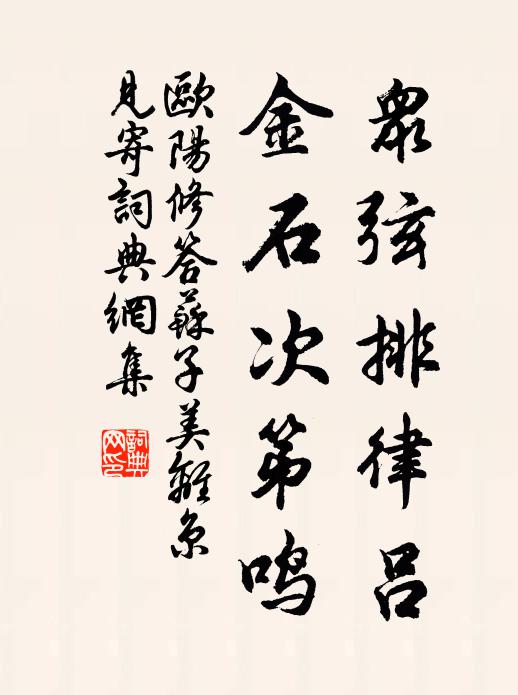 眾弦排律呂
金石次第鳴
歐陽修答蘇子美離京
見寄詞典網集
詞典網印